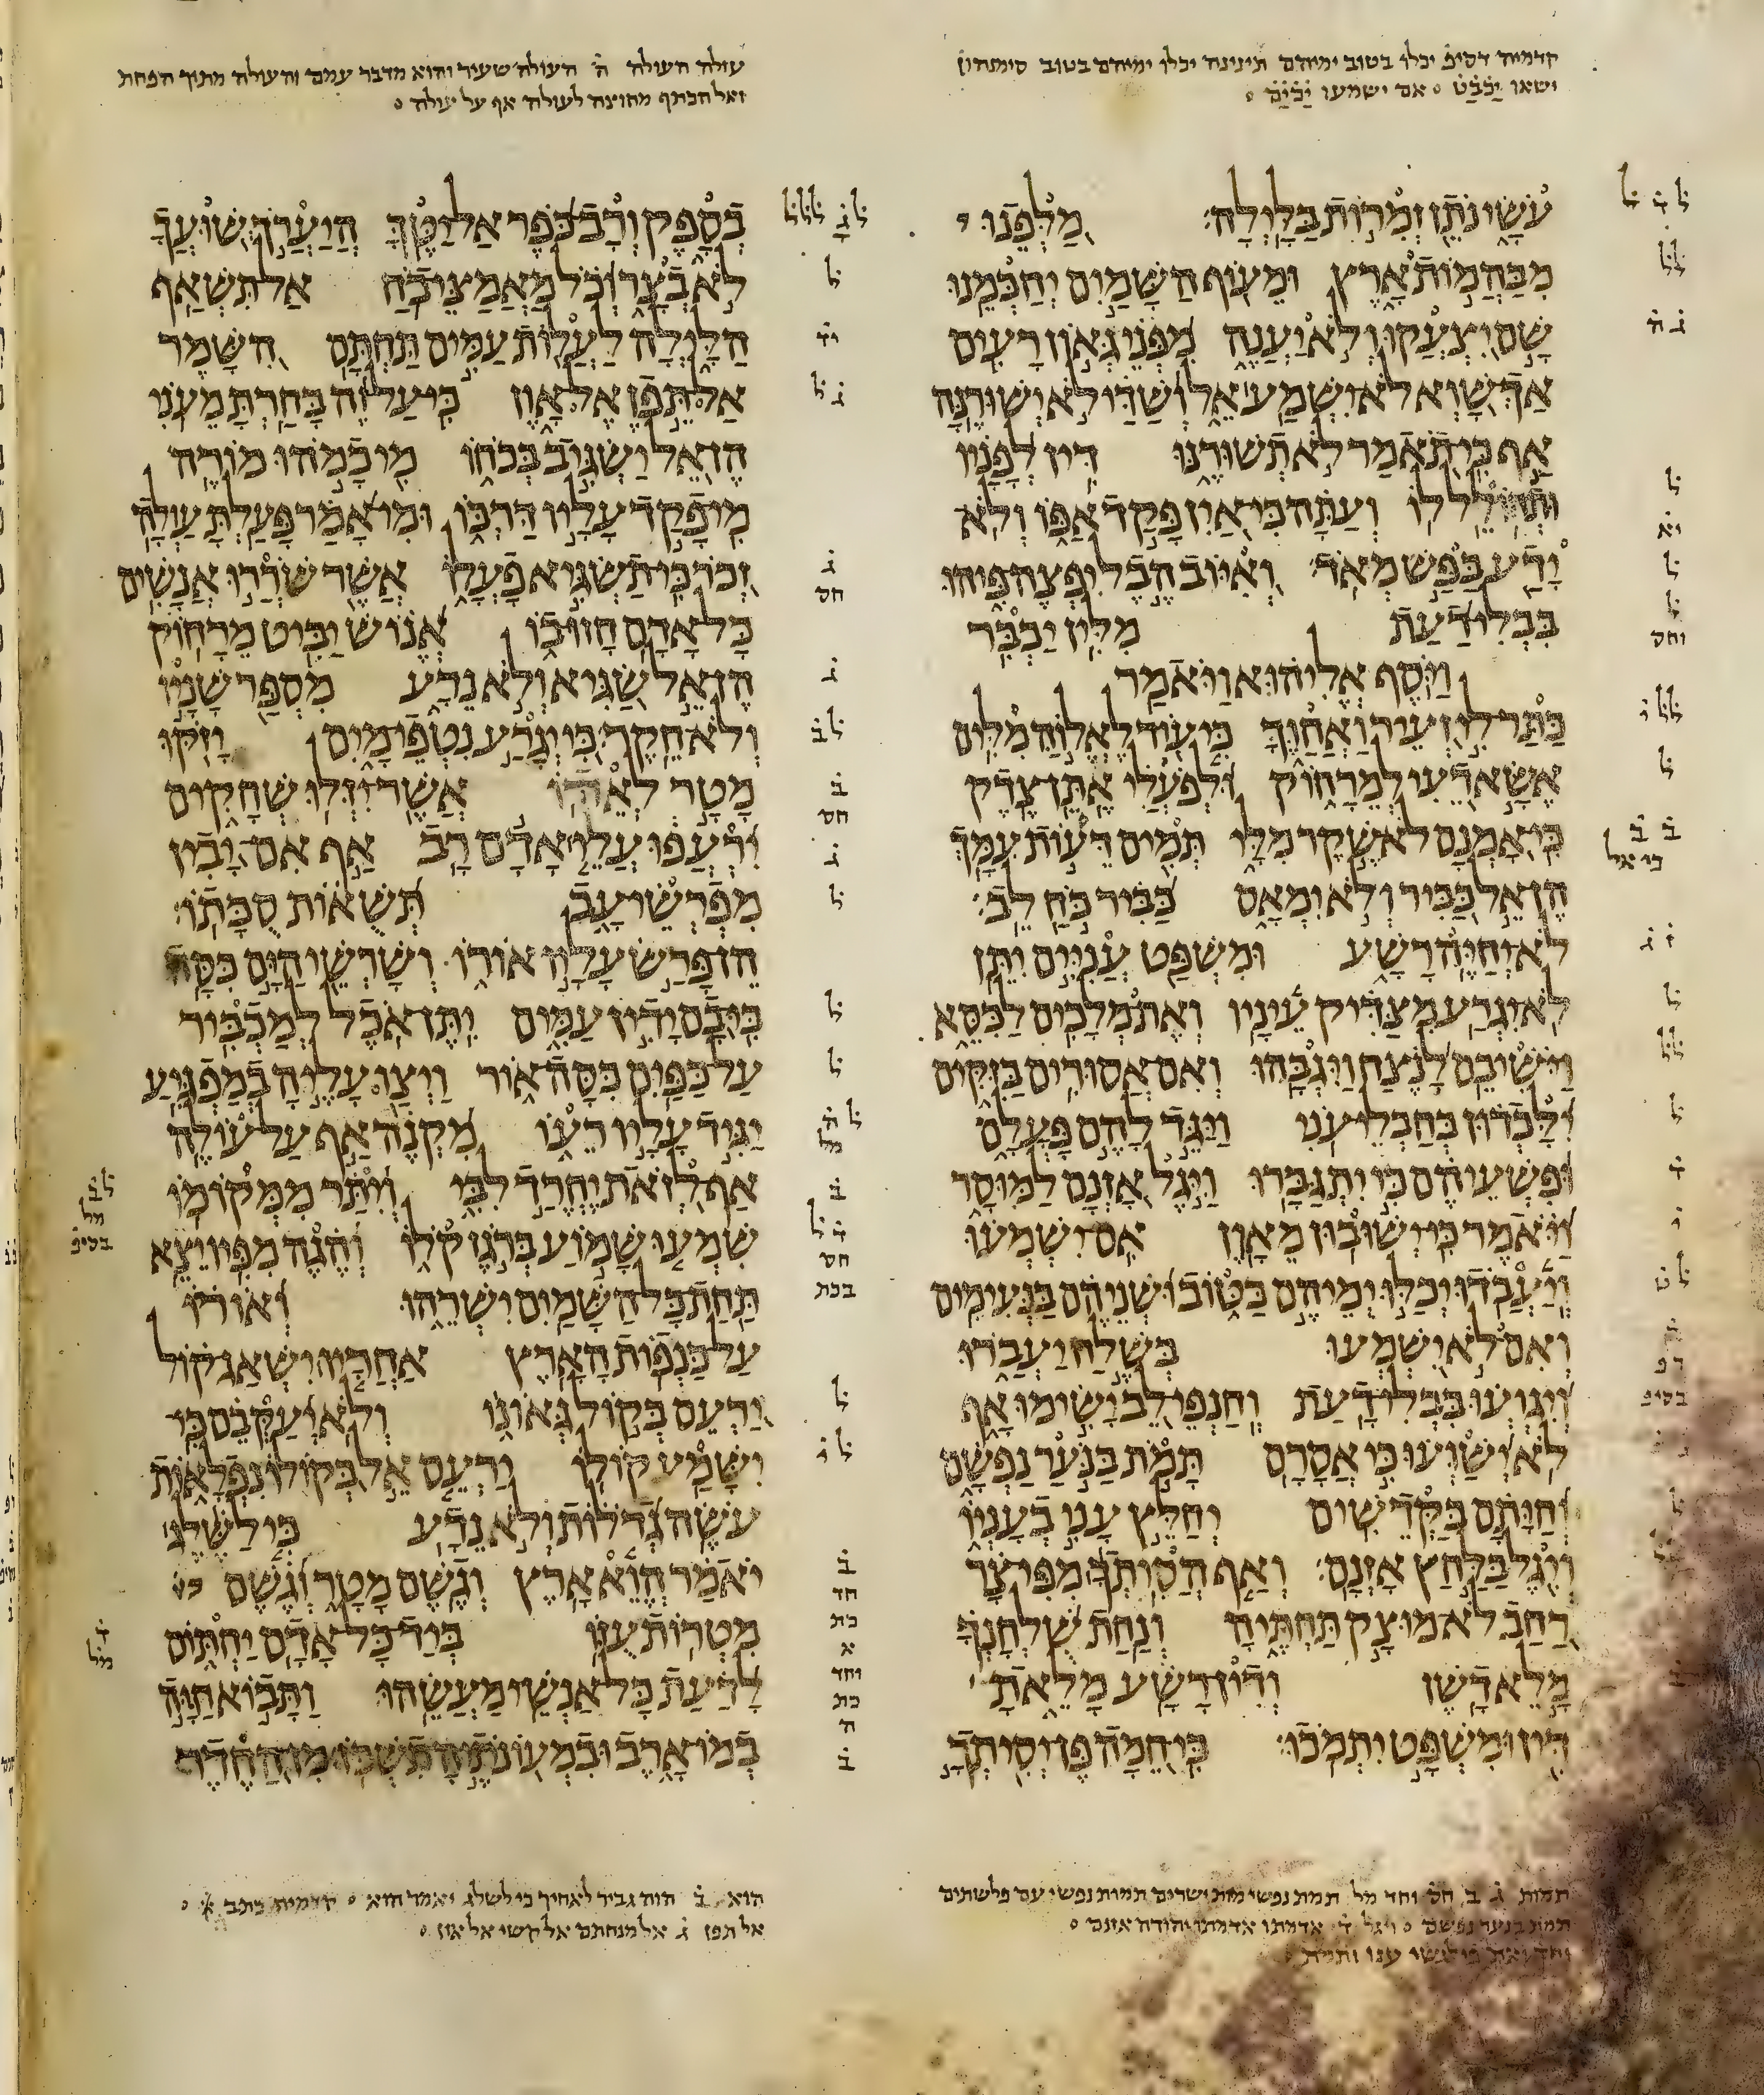 קדמיה דסיפ יכלו בטוב ימיהם תינינה יכלו ימיהם בטוב סימנהון
ישאו אם ישמעו
עֹשָׂי נֹתֵן זְמִרוֹת בַּלָּיְלָה מַלְּפֵנוּ
מִבַּהֲמוֹת אָרֶץ וּמֵעוֹף הַשָּׁמַיִם יְחַכְּמֵנוּ
שָׁם יִצְעֲקוּ וְלֹא יַעֲנֶה מִפְּנֵי גְּאוֹן רָעִים
אַךְ שָׁוְא לֹא יִשְׁמַע אֵל וְשַׁדַּי לֹא יְשׁוּרֶנָּה
אַף כִּי תֹאמַר לֹא תְשׁוּרֶנּוּ דִּין לְפָנָיו
וּתְחוֹלֵל לוֹ וְעַתָּה כִּי אַיִן פָּקַד אַפּוֹ וְלֹא
יָדַע בַּפַּשׁ מְאֹד וְאִיּוֹב הֶבֶל יִפְצֶה פִּיהוּ
בִּבְלִי דַעַת מִלִּין יַכְבִּר
וַיֹּסֶף אֱלִיהוּא וַיֹּאמַר
כַּתַּר לִי זְעֵיר וַאֲחַוֶּךָּ כִּי עוֹד לֶאֱלוֹהַּ מִלִּים
אֶשָּׂא דֵעִי לְמֵרָחוֹק וּלְפֹעֲלִי אֶתֵּן צֶדֶק
כִּי אָמְנָם לֹא שֶׁקֶר מִלָּי תְּמִים דֵּעוֹת עִמָּךְ
הֶן אֵל כַּבִּיר וְלֹא יִמְאָס כַּבִּיר כֹּחַ לֵב
לֹא יְחַיֶּה רָשָׁע וּמִשְׁפַּט עֲנִיִּים יִתֵּן
לֹא יִגְרַע מִצַּדִּיק עֵינָיו וְאֶת מְלָכִים לַכִּסֵּא
וַיֹּשִׁיבֵם לָנֶצַח וַיִּגְבָּהוּ וְאִם אֲסוּרִים בַּזִּקִּים
יִלָּכְדוּן בְּחַבְלֵי עֹנִי וַיַּגֵּד לָהֶם פָּעֳלָם
וּפִשְׁעֵיהֶם כִּי יִתְגַּבָּרוּ וַיִּגֶל אָזְנָם לַמּוּסָר
וַיֹּאמֶר כִּי יְשׁוּבוּן מֵאָוֶן אִם יִשְׁמְעוּ
וְיַעֲבֹדוּ יְכַלּוּ יְמֵיהֶם בַּטּוֹב וּשְׁנֵיהֶם בַּנְּעִימִים
וְאִם לֹא יִשְׁמְעוּ בְּשֶׁלַח יַעֲבֹרוּ
וְיִגְוְעוּ בִּבְלִי דָעַת וְחַנְפֵי לֵב יָשִׂימוּ אָף
לֹא יְשַׁוְּעוּ כִּי אֲסָרָם תָּמֹת בַּנֹּעַר נַפְשָׁם
וְחַיָּתָם בַּקְּדֵשִׁים יְחַלֵּץ עָנִי בְעָנְיוֹ
וְיִגֶל בַּלַּחַץ אָזְנָם וְאַף הֲסִיתְךָ מִפִּי צָר
רַחַב לֹא מוּצָק תַּחְתֶּיהָ וְנַחַת שֻׁלְחָנְךָ
מָלֵא דָשֶׁן וְדִין רָשָׁע מָלֵאתָ
דִּין וּמִשְׁפָּט יִתְמֹכוּ כִּי חֵמָה פֶּן יְסִיתְךָ
עולה העולה ה העולה שעיר והוא מדבר עמם והעולה מתוך הפחת
ואל הכתף מחוצה לעולה אף על עולה
בְסָפֶק וְרָב כֹּפֶר אַל יַטֶּךָּ הֲיַעֲרֹךְ שׁוּעֲךָ
לֹא בְצָר וְכֹל מַאֲמַצֵּי כֹחַ אַל תִּשְׁאַף
הַלָּיְלָה לַעֲלוֹת עַמִּים תַּחְתָּם הִשָּׁמֶר
אַל תֵּפֶן אֶל אָוֶן כִּי עַל זֶה בָּחַרְתָּ מֵעֹנִי
הֶן אֵל יַשְׂגִּיב בְּכֹחוֹ מִי כָמֹהוּ מוֹרֶה
מִי פָקַד עָלָיו דַּרְכּוֹ וּמִי אָמַר פָּעַלְתָּ עַוְלָה
זְכֹר כִּי תַשְׂגִּיא פָעֳלוֹ אֲשֶׁר שֹׁרְרוּ אֲנָשִׁים
כָּל אָדָם חָזוּ בוֹ אֱנוֹשׁ יַבִּיט מֵרָחוֹק
הֶן אֵל שַׂגִּיא וְלֹא נֵדָע מִסְפַּר שָׁנָיו
וְלֹא חֵקֶר כִּי יְגָרַע נִטְפֵי מָיִם יָזֹקּוּ
מָטָר לְאֵדוֹ אֲשֶׁר יִזְּלוּ שְׁחָקִים
יִרְעֲפוּ עֲלֵי אָדָם רָב אַף אִם יָבִין
מִפְרְשֵׂי עָב תְּשֻׁאוֹת סֻכָּתוֹ
הֵן פָּרַשׂ עָלָיו אוֹרוֹ וְשָׁרְשֵׁי הַיָּם כִּסָּה
כִּי בָם יָדִין עַמִּים יִתֶּן אֹכֶל לְמַכְבִּיר
עַל כַּפַּיִם כִּסָּה אוֹר וַיְצַו עָלֶיהָ בְמַפְגִּיעַ
יַגִּיד עָלָיו רֵעוֹ מִקְנֶה אַף עַל עוֹלֶה
אַף לְזֹאת יֶחֱרַד לִבִּי וְיִתַּר מִמְּקוֹמוֹ
שִׁמְעוּ שָׁמוֹעַ בְּרֹגֶז קֹלוֹ וְהֶגֶה מִפִּיו יֵצֵא
תַּחַת כָּל הַשָּׁמַיִם יִשְׁרֵהוּ וְאוֹרוֹ
עַל כַּנְפוֹת הָאָרֶץ אַחֲרָיו יִשְׁאַג קוֹל
יַרְעֵם בְּקוֹל גְּאוֹנוֹ וְלֹא יְעַקְּבֵם כִּי
יִשָּׁמַע קוֹלוֹ יַרְעֵם אֵל בְּקוֹלוֹ נִפְלָאוֹת
עֹשֶׂה גְדֹלוֹת וְלֹא נֵדָע כִּי לַשֶּׁלֶג
יֹאמַר הֱוֵא אָרֶץ וְגֶשֶׁם מָטָר וְגֶשֶׁם
מִטְרוֹת עֻזּוֹ בְּיַד כָּל אָדָם יַחְתּוֹם
לָדַעַת כָּל אַנְשֵׁי מַעֲשֵׂהוּ וַתָּבוֹא חַיָּה
בְמוֹ אָרֶב וּבִמְעוֹנֹתֶיהָ תִשְׁכֹּן מִן הַחֶדֶר
תמות ג ב חס וחד מל תמת נפשי מות ישרים תמות נפשי עם פלשתים
תמת בנער נפשם ויגל ד אדמתו יהודה אזנם
הוא ב הוה גביר לאחיך כי לשלג יאמר הוא
אל תפן ג אל מנחתם אל קשי אל און